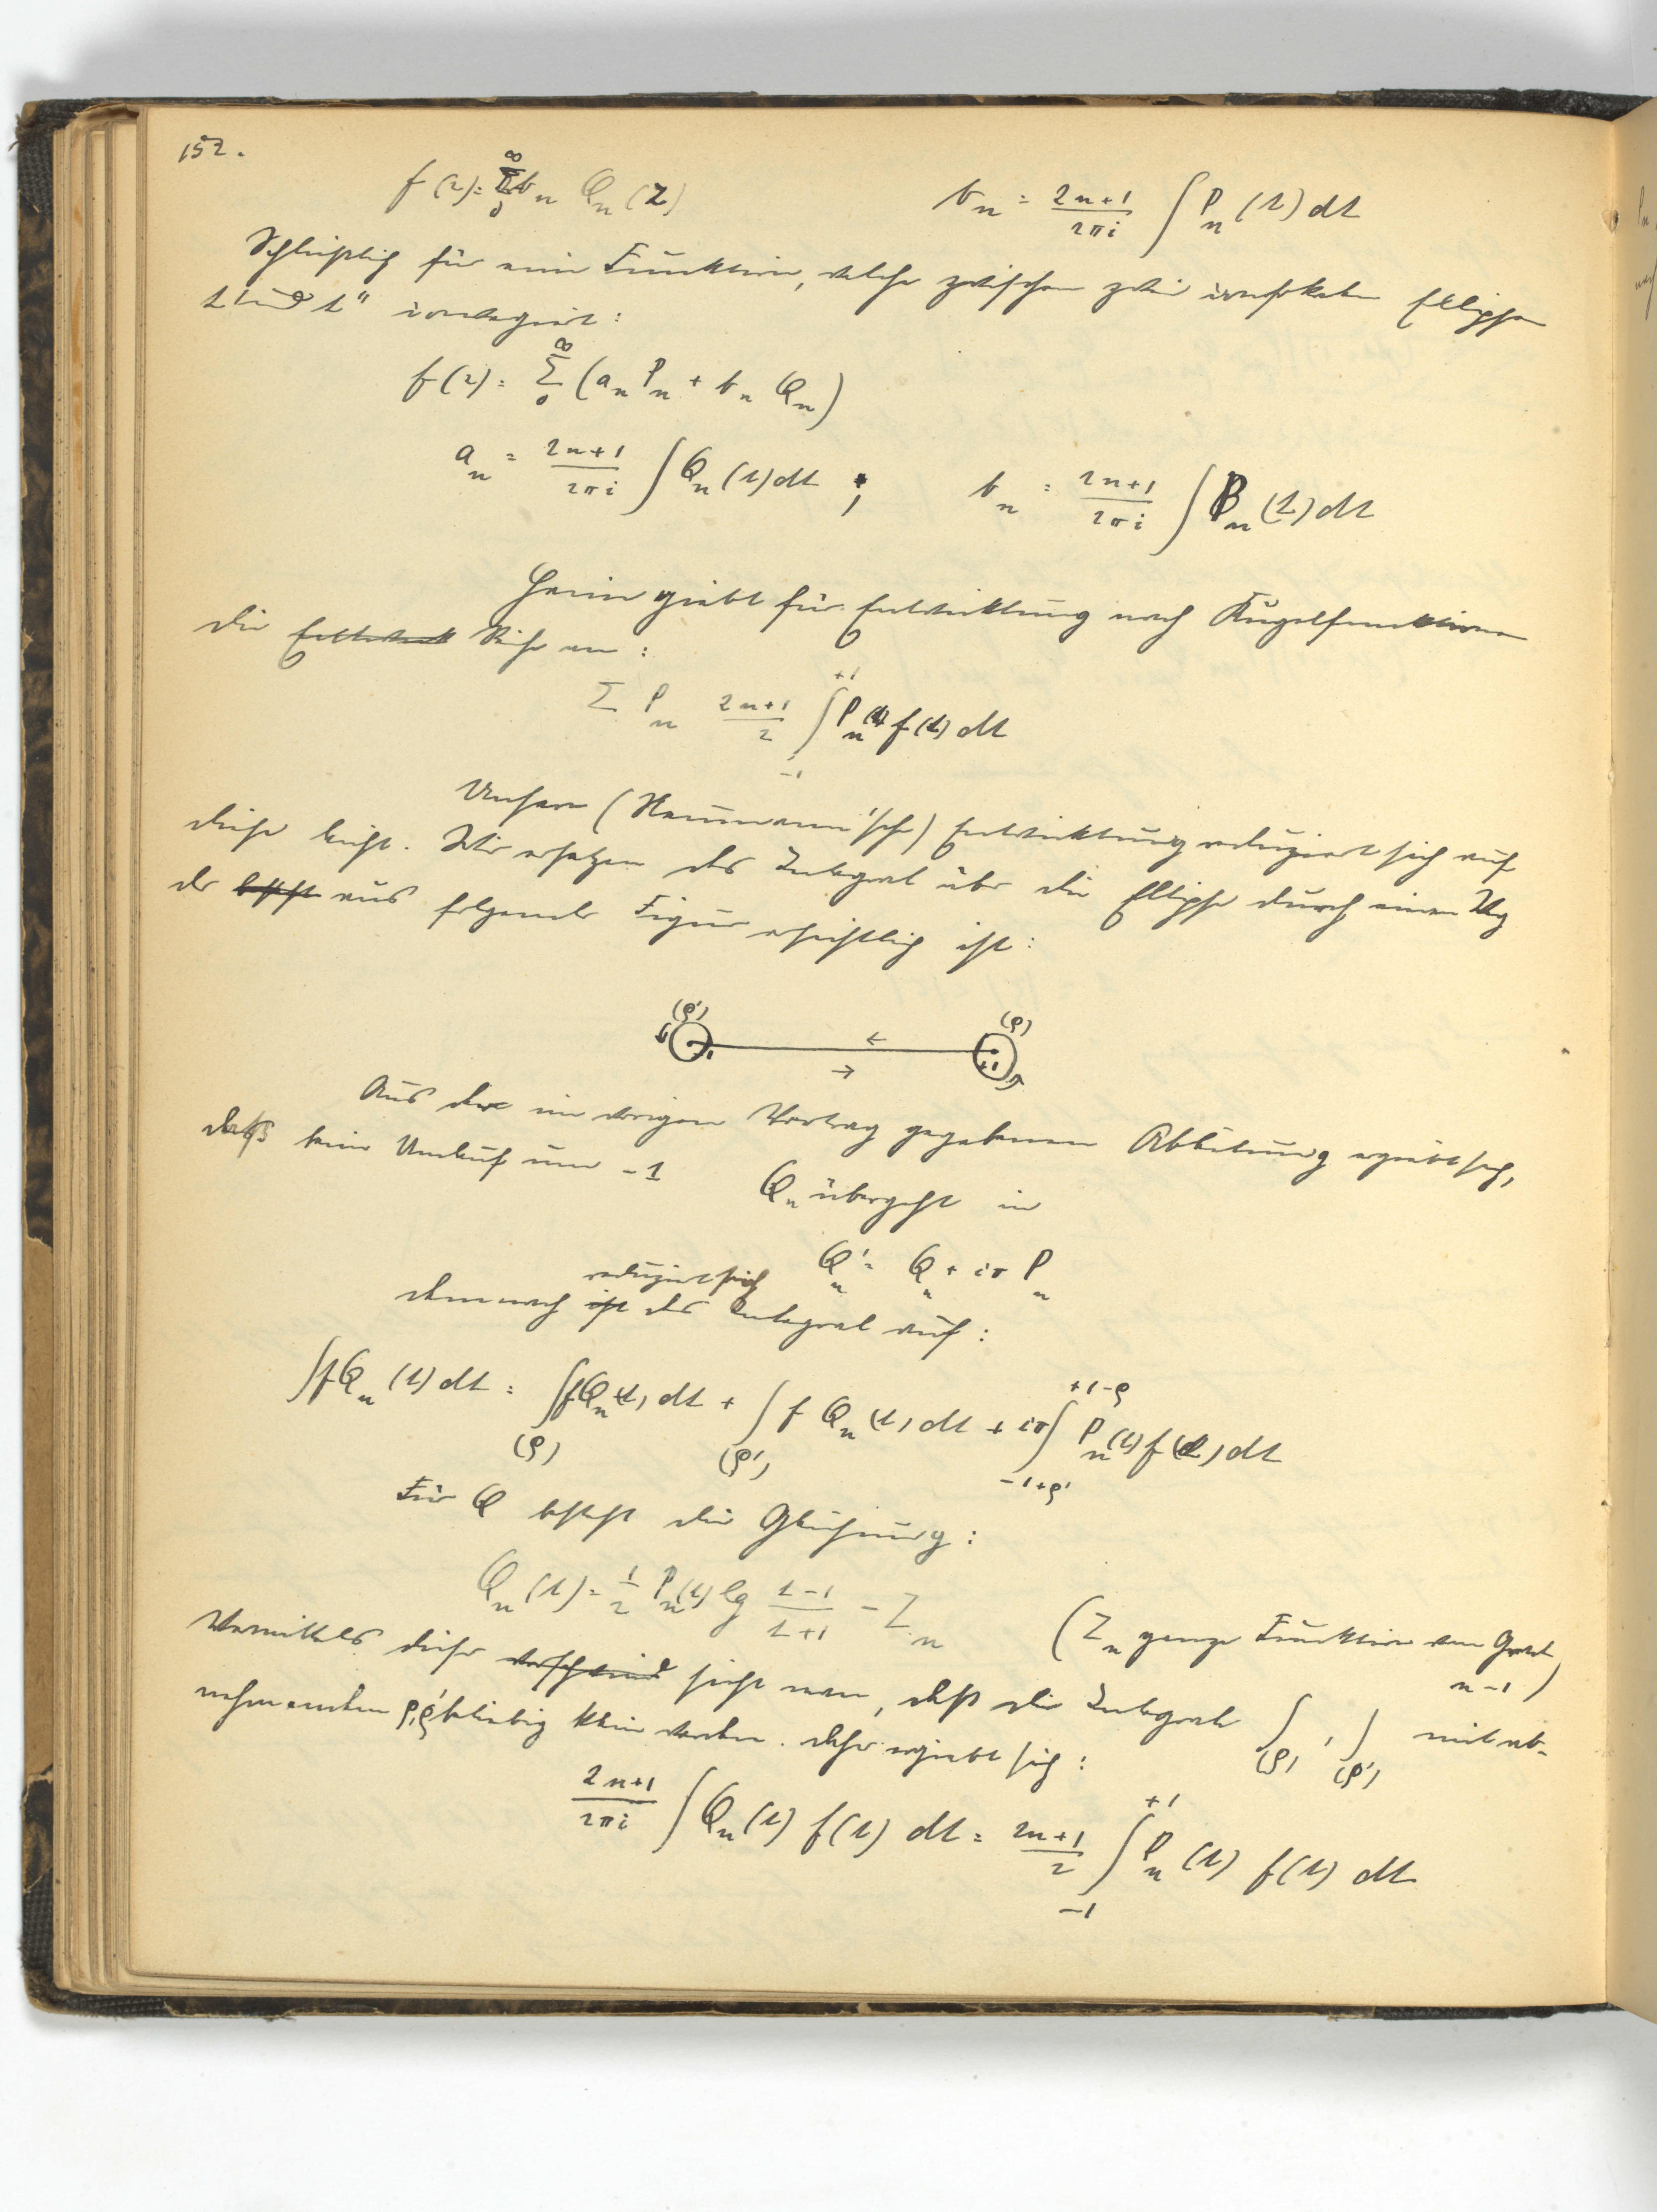 152.
f(z) = ∞Σ0 b_n Q_n(z)    b_n = (2n+1)/(2πi) ∫ P_n(t) dt
Schließlich für eine Funktion, welche zwischen zwei confokalen Ellipsen
t' und t" convergirt:
f(z) = ∞Σ0 (a_n P_n + b_n Q_n)
a_n = (2n+1)/(2πi) ∫ Q_n(t) dt ;    b_n = (2n+1)/(2πi) ∫ P_n(t) dt
Heine giebt für Entwicklung nach Kugelfunktionen
die Reihe an:
Σ P_n (2n+1)/2 ∫_{-1}^{+1} P_n(t) f(t) dt
Unsere (Neumann'sche) Entwicklung reduziert sich auf
diese leicht. Wir ersetzen das Integral über die Ellipse durch einen Weg
der aus folgender Figur ersichtlich ist:
(ρ')    (ρ)
← →
-1    +1
Aus der im vorigen Vortrag gegebenen Abbildung ergiebt sich,
daß beim Umlauf um -1    Q_n übergeht in
Q'_n = Q_n + iπ P_n
demnach reduziert sich das Integral auf:
∫ f Q_n(t) dt = ∫_{(ρ)} f Q_n(t) dt + ∫_{(ρ')} f Q_n(t) dt + iπ ∫_{-1+ρ'}^{+1-ρ} P_n(t) f(t) dt
Für Q besteht die Gleichung:
Q_n(t) = 1/2 P_n(t) lg (t-1)/(t+1) - Z_n    (Z_n ganze Funktion vom Grad
n-1)
Vermittels dieser sieht man, daß die Integrale ∫_{(ρ)}, ∫_{(ρ')} mit ab-
nehmenden ρ, ρ' beliebig klein werden. Daher ergiebt sich:
(2n+1)/(2πi) ∫ Q_n(t) f(t) dt = (2n+1)/2 ∫_{-1}^{+1} P_n(t) f(t) dt